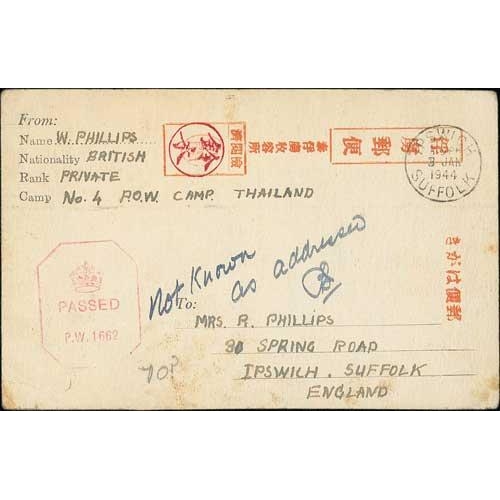 From:
Name W. PHILLIPS
Nationality BRITISH
Rank PRIVATE
Camp No. 4 P.O.W. CAMP. THAILAND
俘虜郵便
泰俘虜收容所
檢閲濟
IPSWICH
3 JAN
1944
SUFFOLK
郵便はがき
Not Known
as addressed
PASSED
P.W. 1662
To:
MRS. R. PHILLIPS
30 SPRING ROAD
IPSWICH. SUFFOLK
ENGLAND